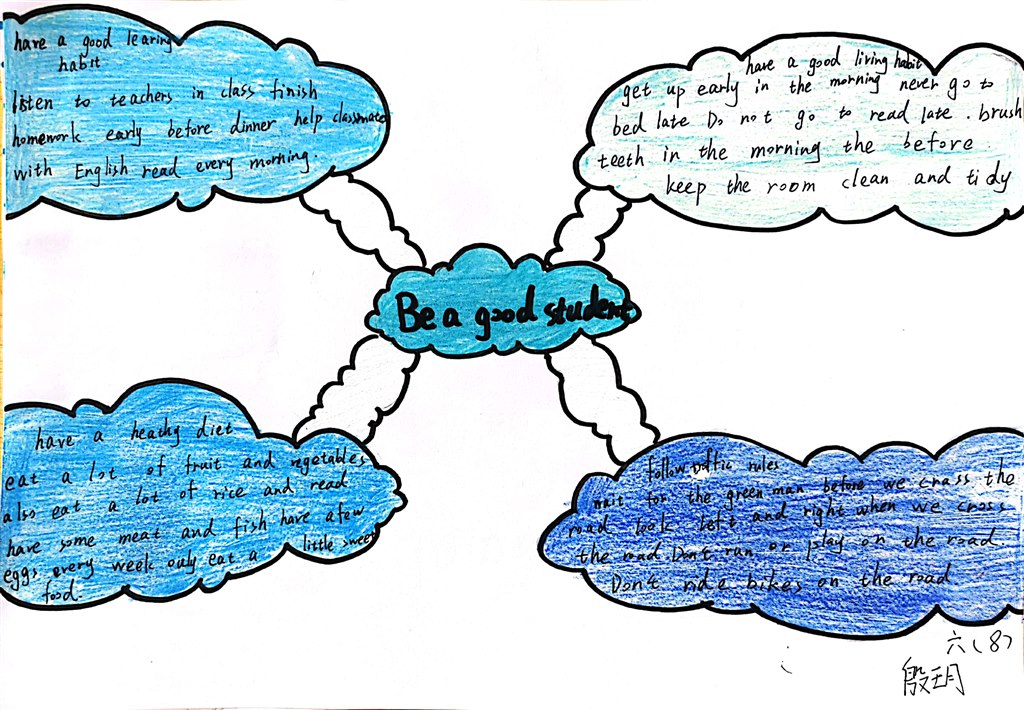 have a good learing
habit
listen to teachers in class finish
homework early before dinner help classmate
with English read every morning
have a good living habit
get up early in the morning never go to
bed late Do not go to read late . brush
teeth in the morning the before .
keep the room clean and tidy
Be a good student
have a heathy diet
eat a lot of fruit and vegetables
also eat a lot of rice and read
have some meat and fish have a few
eggs every week only eat a little sweet
food.
follow rules
wait for the green man before we crass the
road look left and right when we cross
the road Don't run or play on the road
Don't ride bikes on the road
六(8)
殷玥